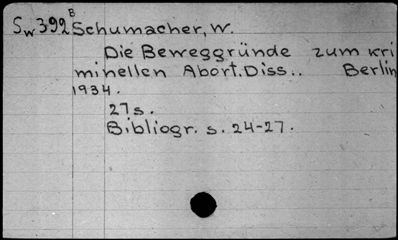 Sw 392 B Schumacher, W.
Die Beweggründe zum kri
minellen Abort. Diss.. Berlin
1934.
27 s.
Bibliogr. s. 24-27.